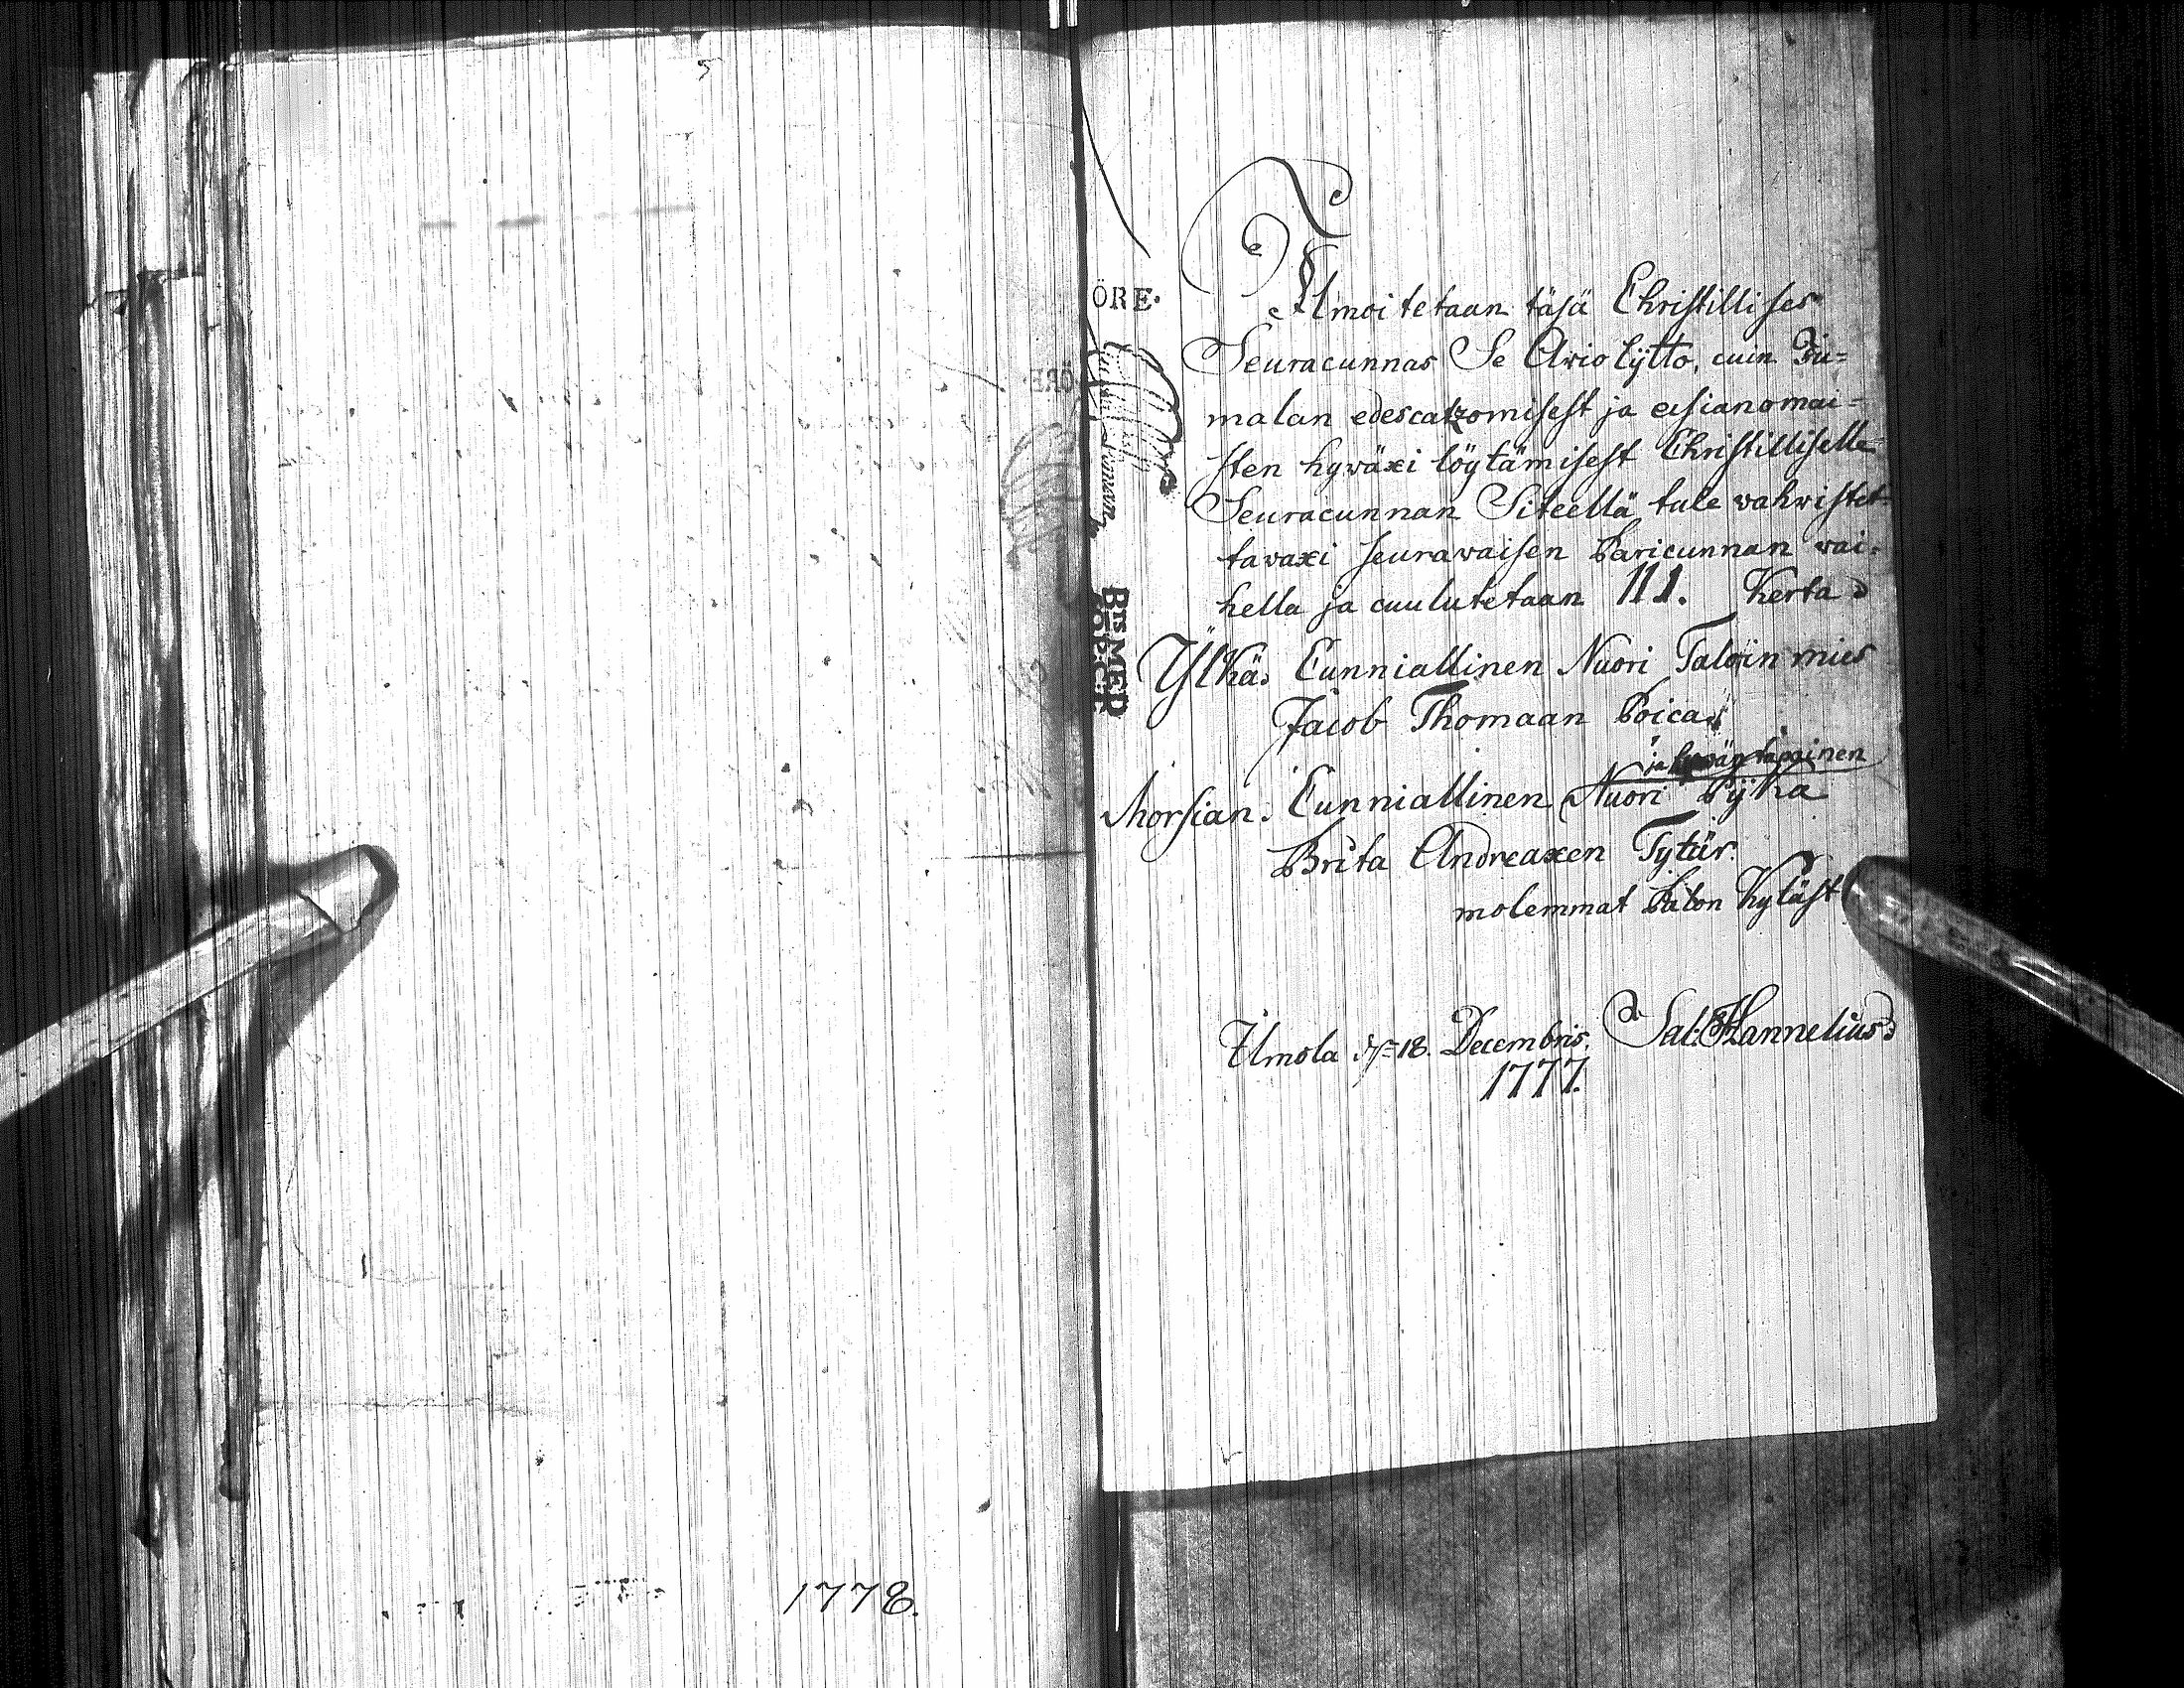 1778.
ÖRE.
Ilmoitetaan täsä Christillises
Seuracunnas Se Awiolijtto, cuin Ju=
malan edescatzomisest ja asianomai=
sten hywäxi löytämisest Christillisellä
Seuracunnan Siteellä tule wahwistet=
tawaxi seurawaisen Paricunnan wai=
hella ja cuulutetaan 111. Kerta
Ylkä. Cunniallinen Nuori Taloin mies
Jacob Thomaan Poica
ja
Morsian. Cunniallinen Nuori Pijka
Brita Andreaxen Tytär.
molemmat Palon Kyläst
Ilmola d. 18. Decembris. Sal: Hannelius
1777.